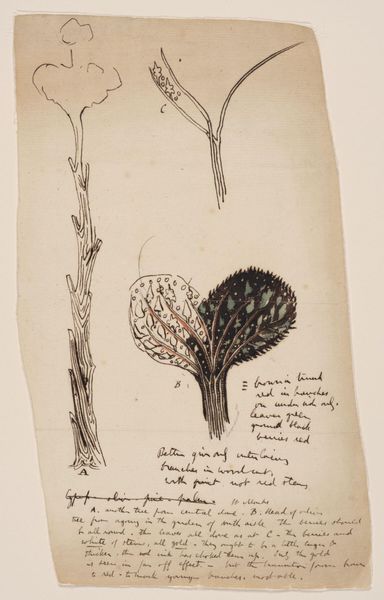 C
B.
brown in trunk
red in branches
on under side only.
leaves green
ground black
berries red
Better give only interlacing
branches in wood cut,
with print not red stems
A
St Marks
A. another tree from central dome. B. Head of olive
tree from agony in the garden of south aisle. The berries should
be all round - the leaves all done as at C - the berries and
white of stems, all gold. They ought to be a little larger &
thicker. the red ink has choked them up. but the gold
as seen in far off effect - but the transition from brown
to red - to mark younger branches. most able.